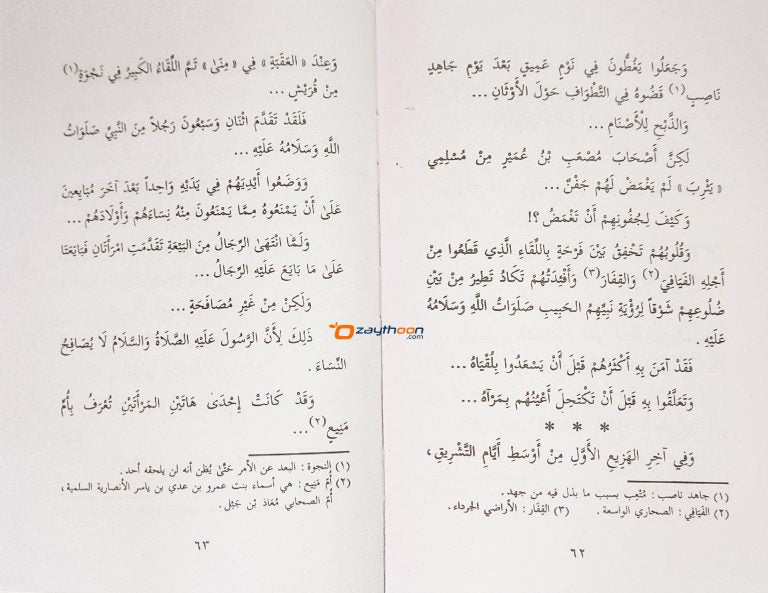 وَجَعَلُوا يَغُطُّونَ فِي نَوْمٍ عَمِيقٍ بَعْدَ يَوْمٍ جَاهِدٍ
نَاصِبٍ(١) قَضُوهُ فِي التَّطْوَافِ حَوْلَ الأَوْثَانِ ...
وَالذَّبْحِ لِلْأَصْنَامِ ...
لَكِنَّ أَصْحَابَ مُصْعَبِ بْنُ عُمَيْرٍ مِنْ مُسْلِمِي
« يَثْرِبَ » لَمْ يَغْمَضْ لَهُمْ جَفْنٌ ...
وَكَيْفَ لِجُفُونِهِمْ أَنْ تَغْمُضَ ؟!
وَقُلُوبُهُمْ تَخْفِقُ بَيْنَ فَرْحَةٍ بِاللِّقَاءِ الَّذِي قَطَعُوا مِنْ
أَجْلِهِ الفَيَافِيَ(٢) وَالقِفَارَ(٣) وَأَفْئِدَتُهُمْ تَكَادُ تَطِيرُ مِنْ بَيْنِ
ضُلُوعِهِمْ شَوْقاً لِرُؤْيَةِ نَبِيِّهِمُ الحَبِيبِ صَلَوَاتُ اللَّهِ وَسَلَامُهُ
عَلَيْهِ .
فَقَدْ آمَنَ بِهِ أَكْثَرُهُمْ قَبْلَ أَنْ يَسْعَدُوا بِلُقْيَاهُ ...
وَتَعَلَّقُوا بِهِ قَبْلَ أَنْ تَكْتَحِلَ أَعْيُنُهُمْ بِمَرْآهُ ...
* * *
وَفِي آخِرِ الهَزِيعِ الأَوَّلِ مِنْ أَوْسَطِ أَيَّامِ التَّشْرِيقِ،
(١) جاهد ناصب : مُتْعِب بسبب ما بذل فيه من جهد .
(٢) الفَيَافِي : الصحاري الواسعة . (٣) القِفَار : الأراضي الجرداء .
٦٢
وَعِنْدَ « العَقَبَةِ » فِي « مِنَىٰ » تَمَّ اللِّقَاءُ الكَبِيرُ فِي نَجْوَةٍ(١)
مِنْ قُرَيْشٍ ...
فَلَقَدْ تَقَدَّمَ اثْنَانِ وَسَبْعُونَ رَجُلاً مِنَ النَّبِيِّ صَلَوَاتُ
اللَّهِ وَسَلَامُهُ عَلَيْهِ ...
وَوَضَعُوا أَيْدِيَهُمْ فِي يَدَيْهِ وَاحِداً بَعْدَ آخَرَ مُبَايِعِينَ
عَلَىٰ أَنْ يَمْنَعُوهُ مِمَّا يَمْنَعُونَ مِنْهُ نِسَاءَهُمْ وَأَوْلَادَهُمْ ...
وَلَمَّا انْتَهَىٰ الرِّجَالُ مِنَ البَيْعَةِ تَقَدَّمَتِ امْرَأَتَانِ فَبَايَعَتَا
عَلَىٰ مَا بَايَعَ عَلَيْهِ الرِّجَالُ ...
وَلَكِنْ مِنْ غَيْرِ مُصَافَحَةٍ ...
ozaythoon.com
ذَلِكَ لِأَنَّ الرَّسُولَ عَلَيْهِ الصَّلَاةُ وَالسَّلَامُ لَا يُصَافِحُ
النِّسَاءَ .
وَقَدْ كَانَتْ إِحْدَىٰ هَاتَيْنِ المَرْأَتَيْنِ تُعْرَفُ بِأُمِّ
مَنِيعٍ(٢) ...
(١) النجوة : البعد عن الأمر حَتَّىٰ يُظن أنه لن يلحقه أحد .
(٢) أُمّ مَنِيع : هي أسماء بنت عمرو بن عدي بن ياسر الأنصارية السلمية ،
أُمّ الصحابي مُعَاذ بْن جَبَل .
٦٣